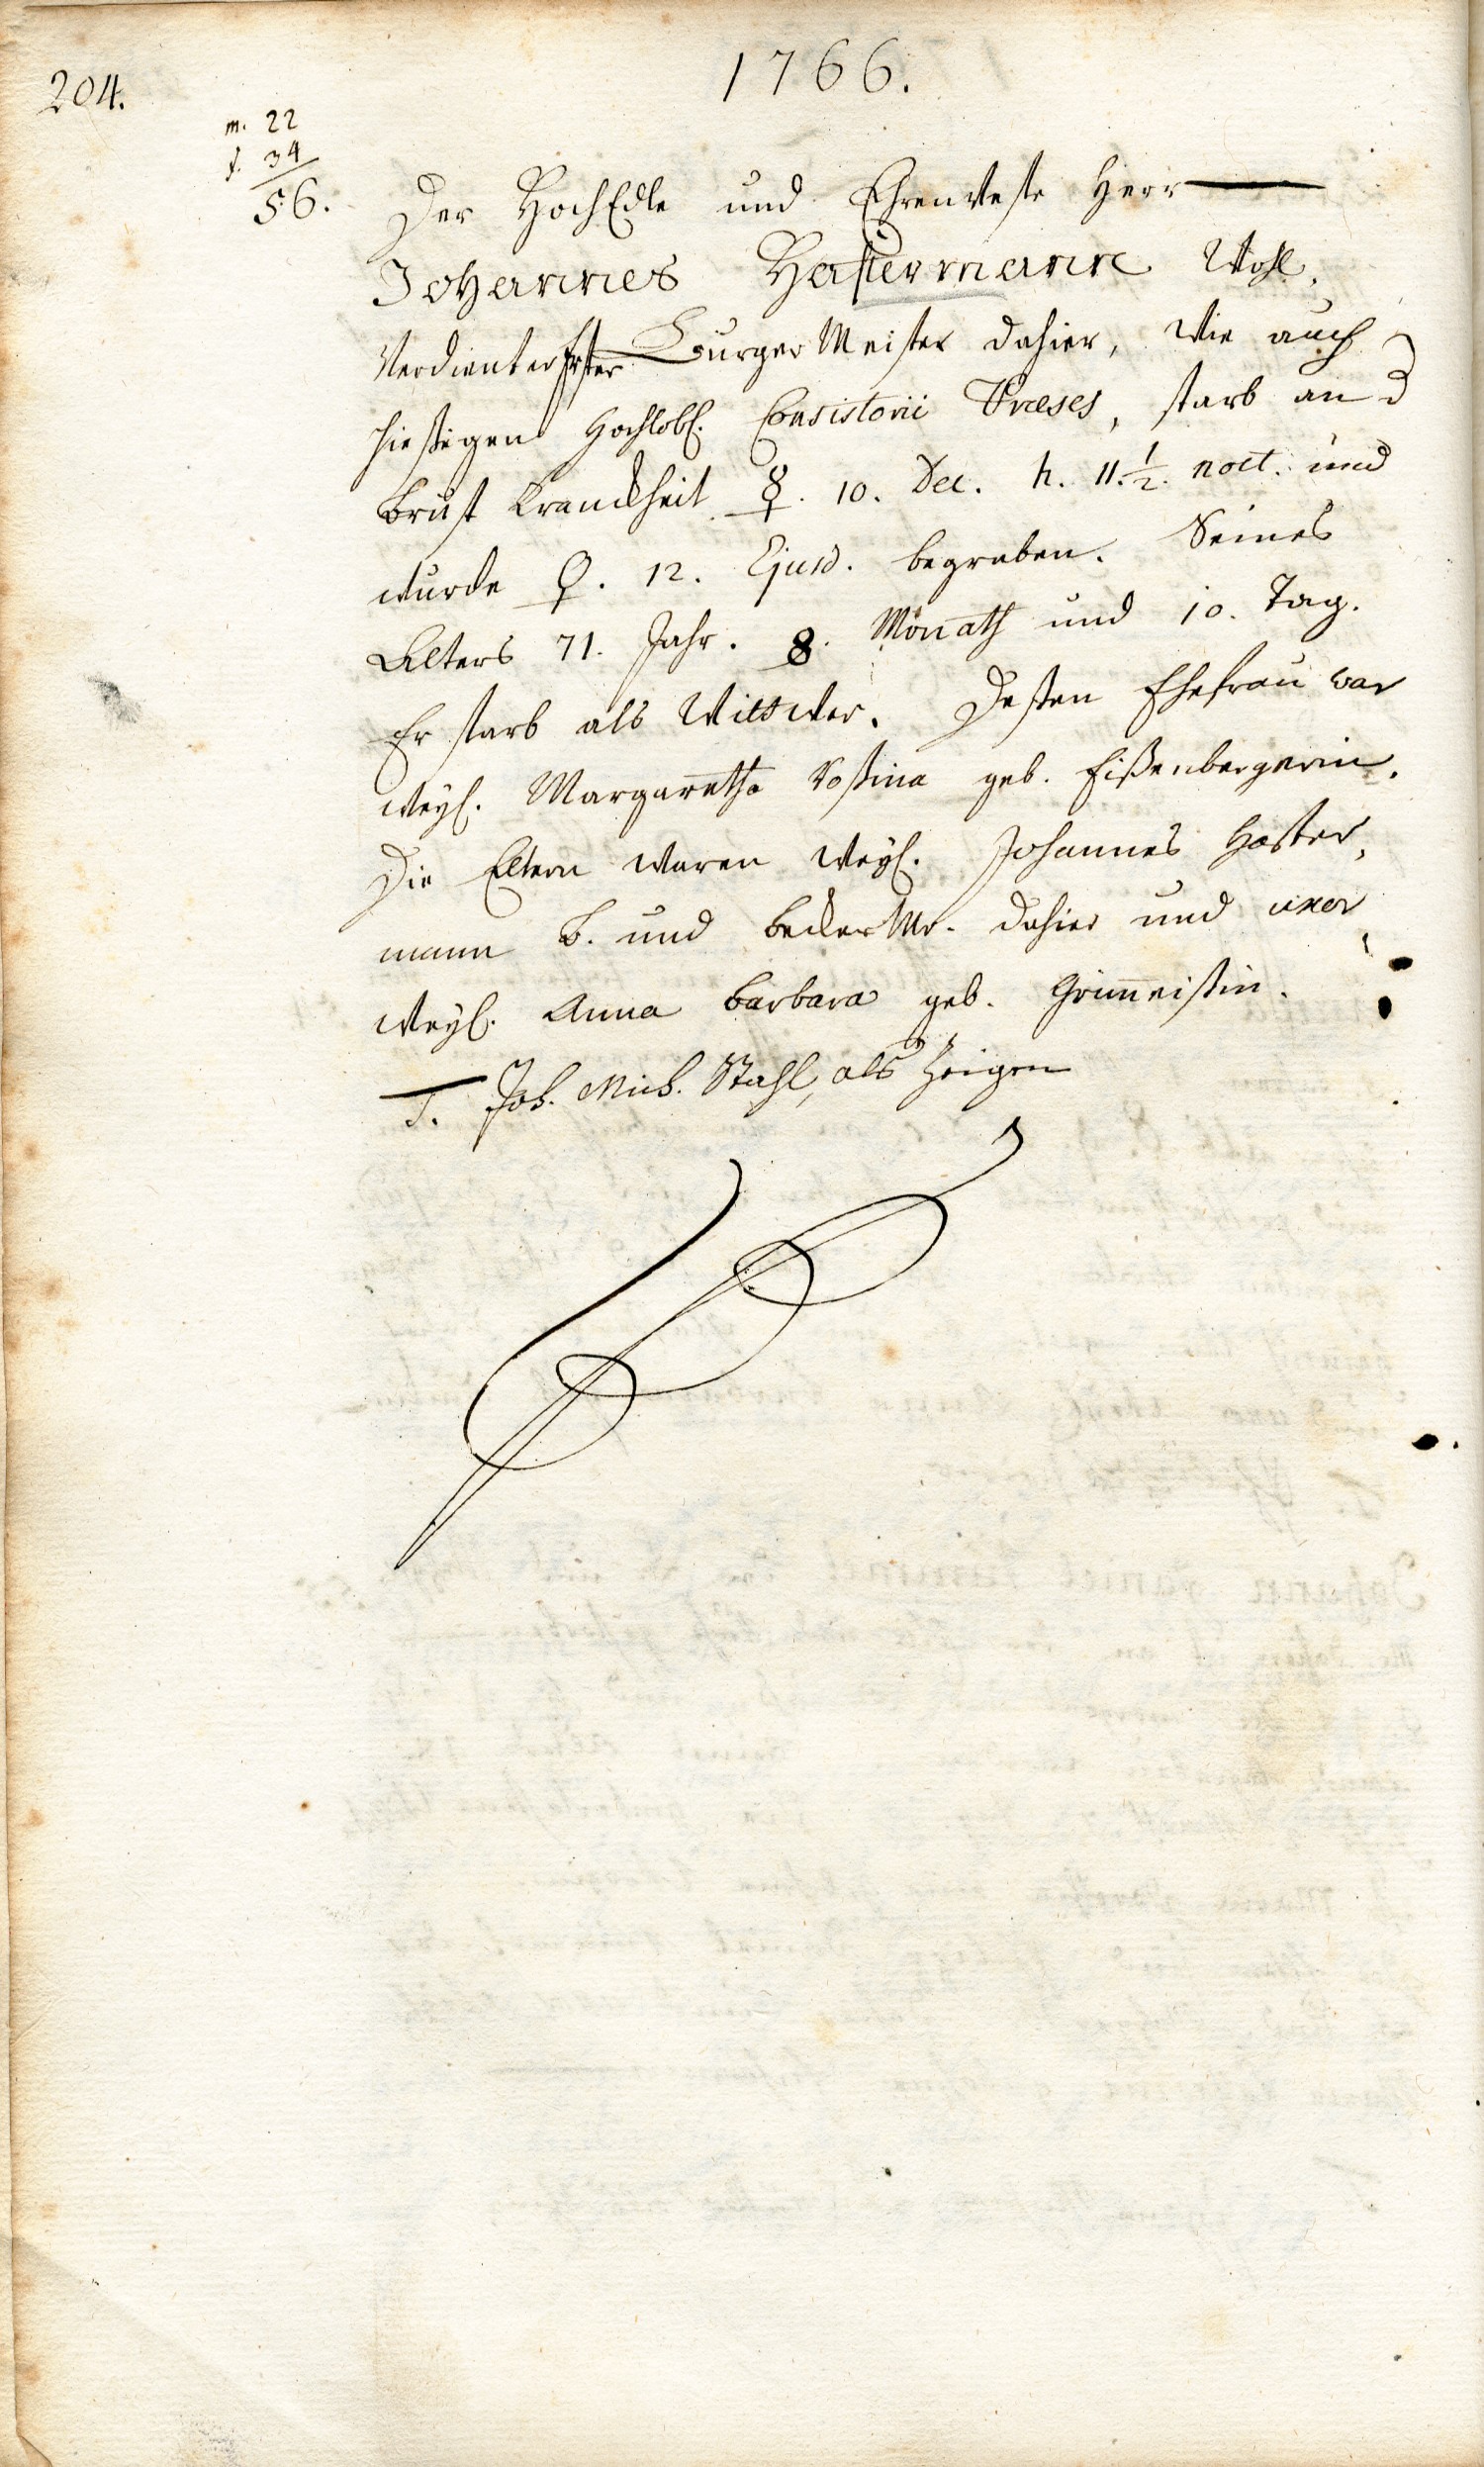 1766.
204.
m. 22
f. 34
56.
Der HochEdle und Ehrenveste Herr
Johannes Hastermann Wohl,
Verdienter Erster Burger Meister dahier, wie auch
hießigen Hochlobl. Consistorii Præses, starb an d
Brust Kranckheit ☿. 10. Dec. h. 11. ½. noct. und
wurde ♀. 12. Ejusd. begraben. Seines
Alters 71. Jahr. 8. Monath und 10. Tag.
Er starb als Wittwer. Deßen Ehefrau war
weyl. Margaretha Roßina geb. Eißenbergerin.
Die Eltern waren weyl. Johannes Haster,
mann B. und Becker Mr. dahier und uxor
weyl. Anna Barbara geb.
T. Joh. Mich. Stahl, als Zeigen